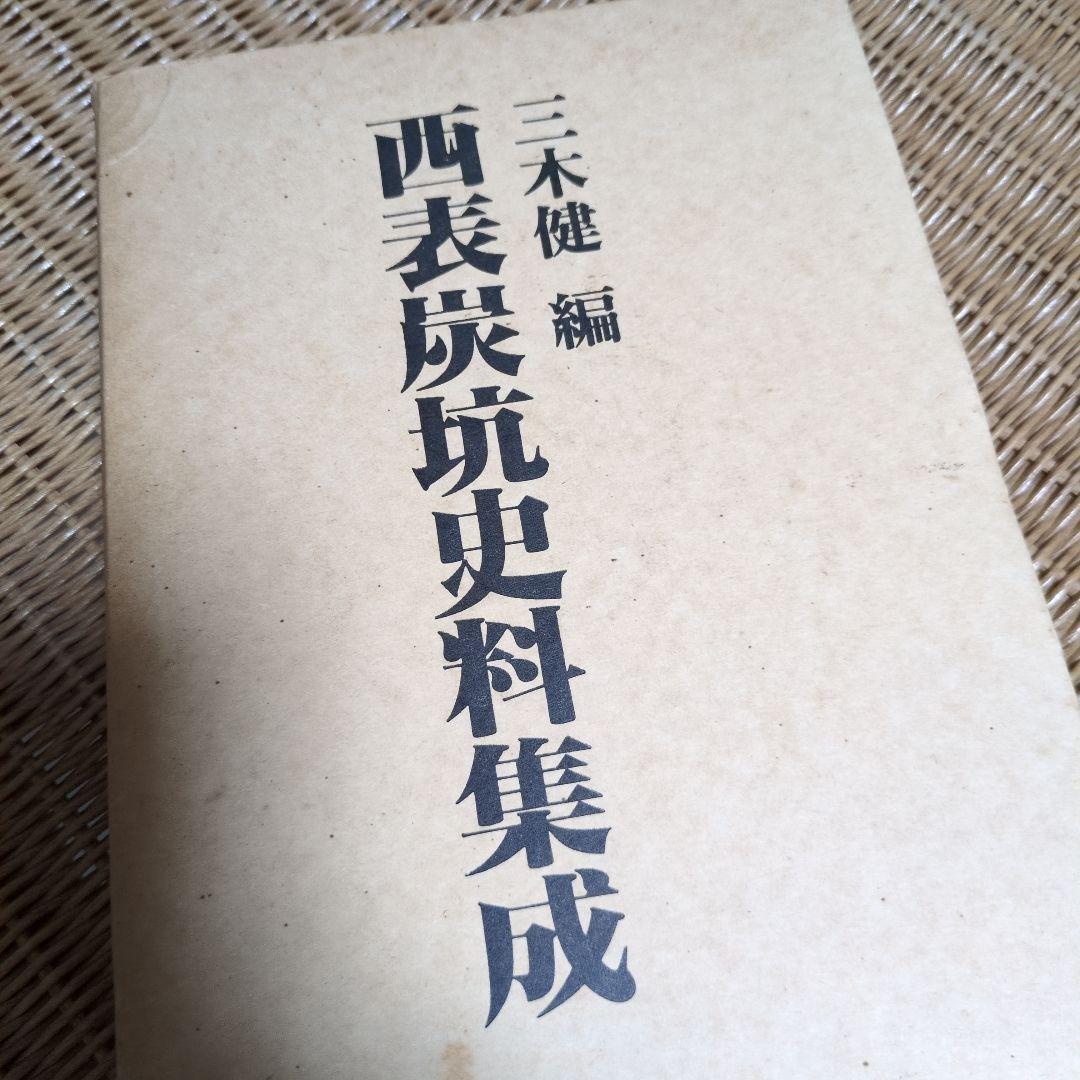 三木健 編
西表炭坑史料集成